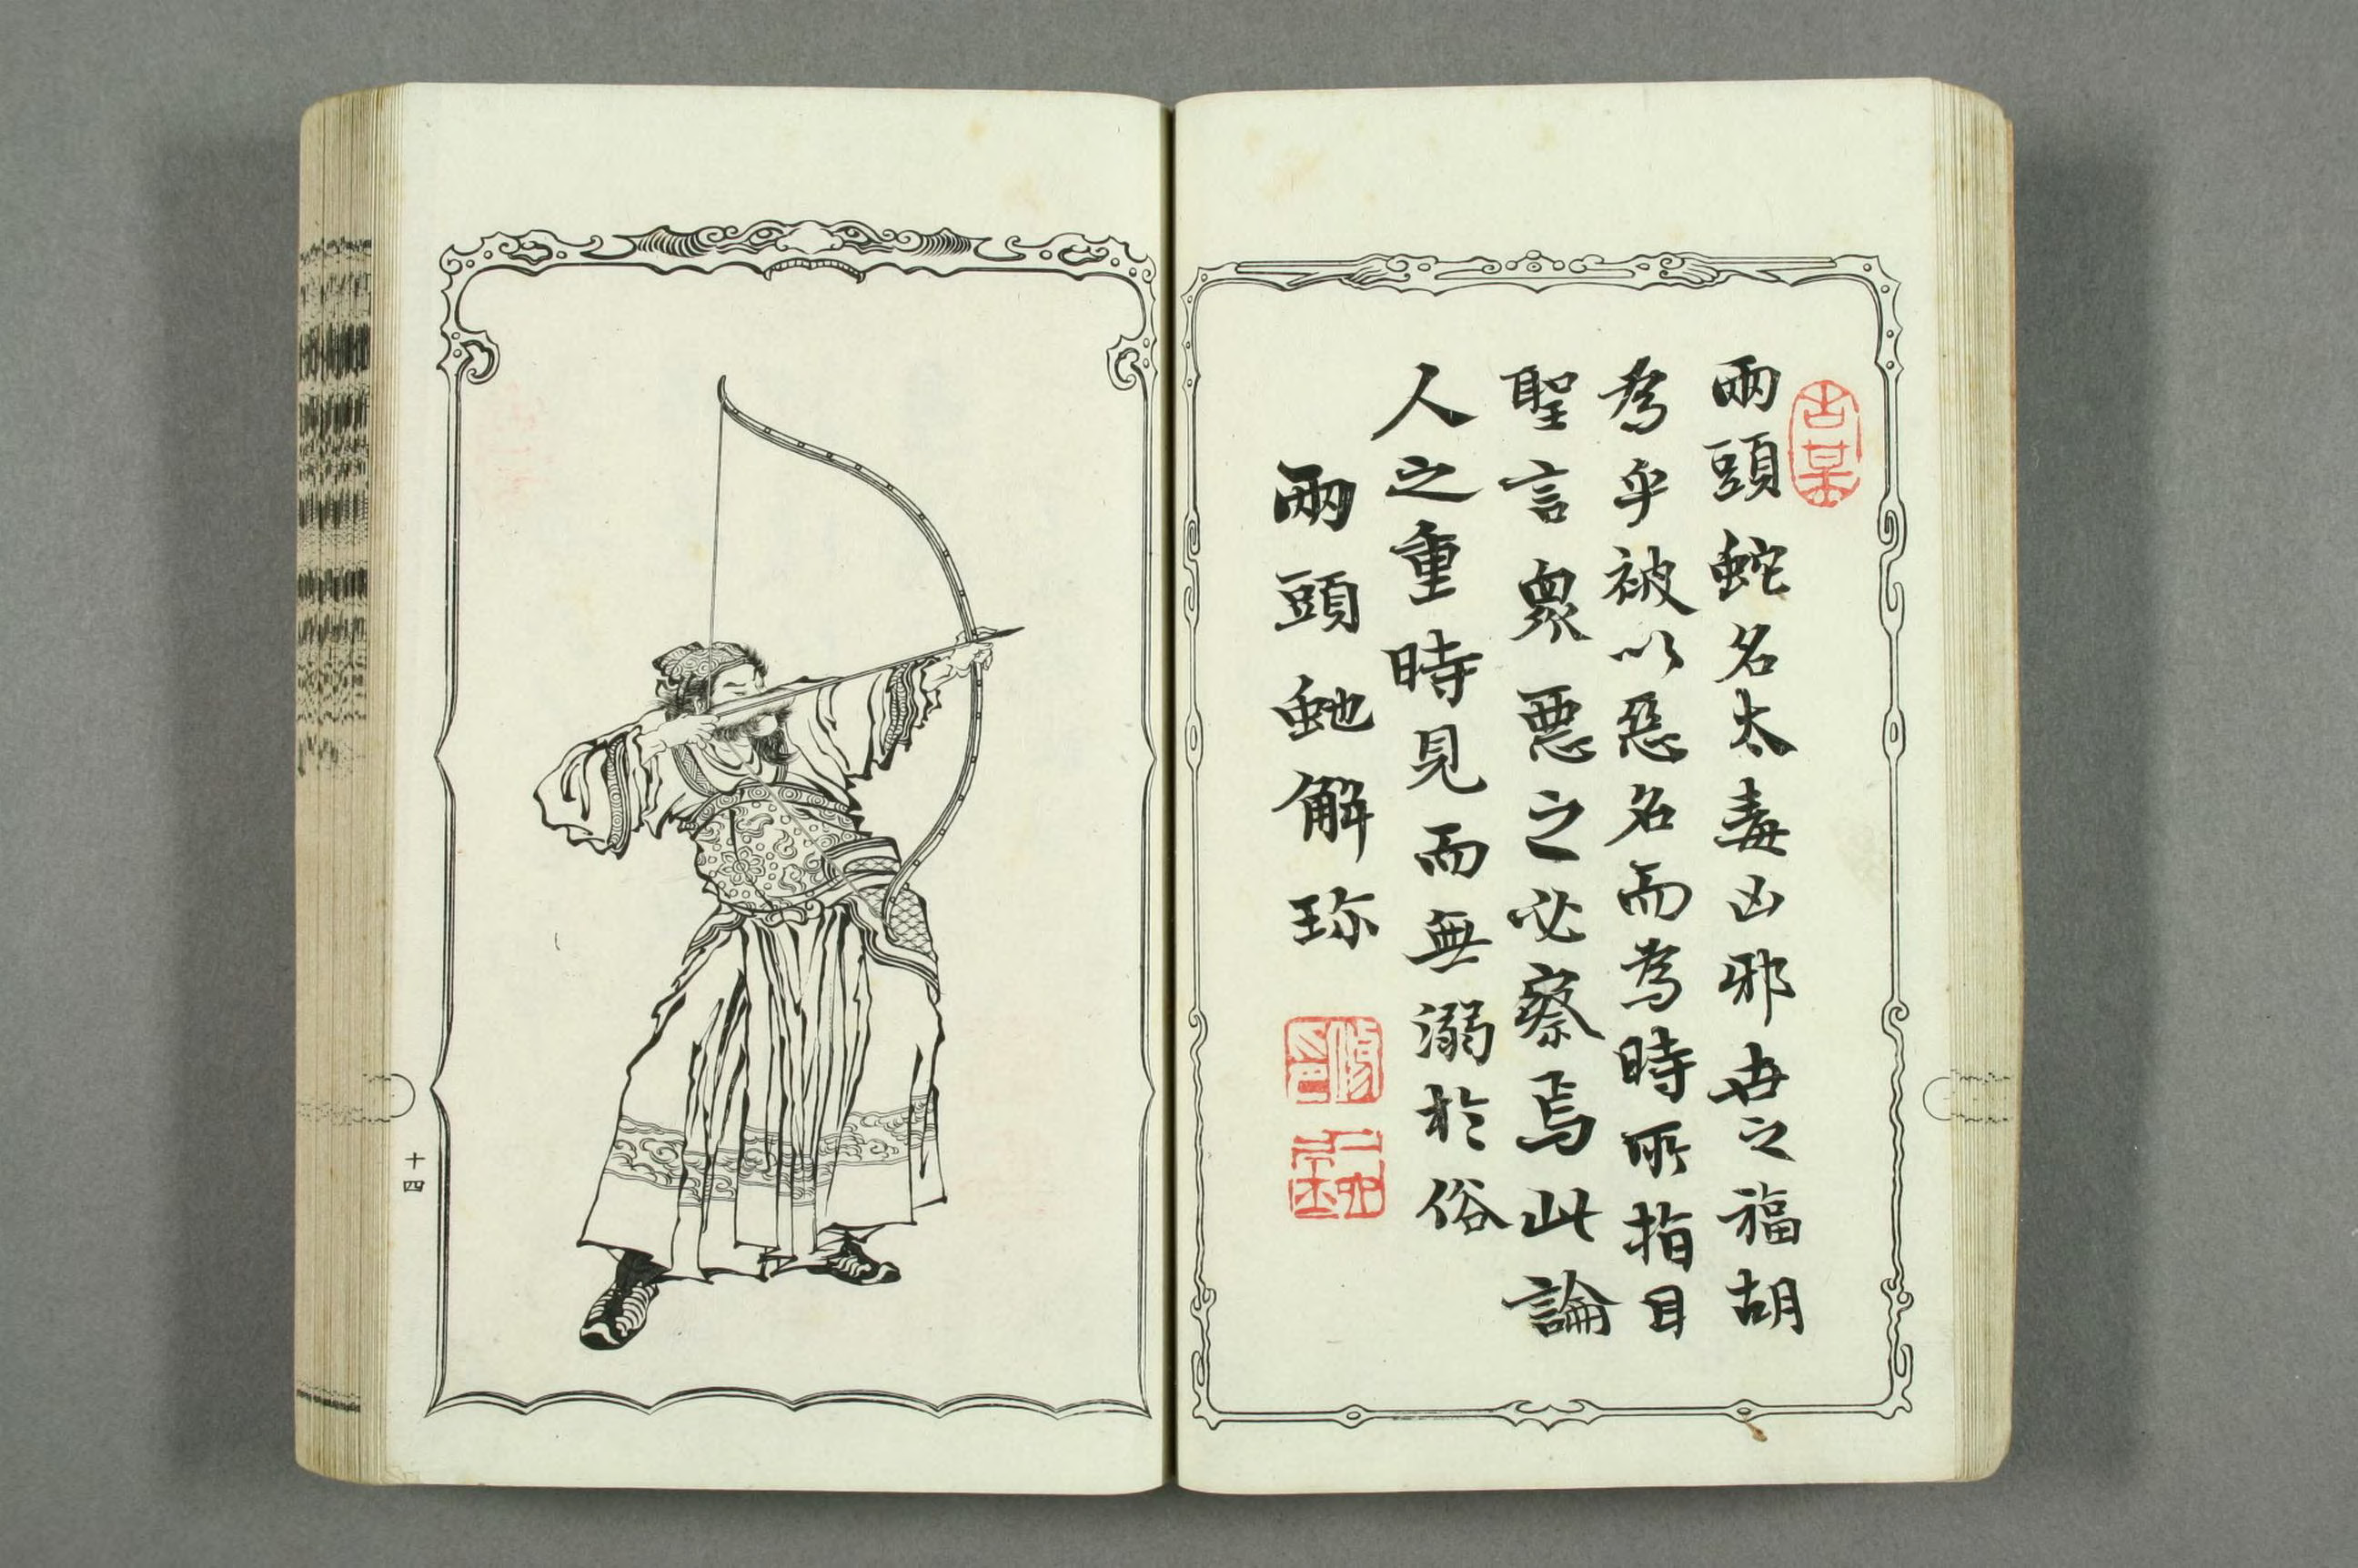 兩頭蛇名太毒凶邪世之福胡
為乎被以惡名而為時所指目
聖言眾惡之必察焉此論
人之重時見而無溺於俗
兩頭虵解珎
十四